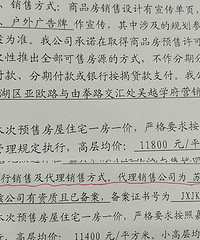 、销售方式；商品房销售设计有宣传单页，
、户外广告牌 作宣传，其中涉及的规划参
为准。我公司承诺在取得商品房预售许可
性推出全部可售房的方式，不作分期分
付款、分期付款或银行按揭贷款支付。我公
湖区亚欧路与由拳路交汇处吴越学府营销
次预售房屋住宅一房一价，严格要求按
管理规定执行，高层均价： 11800 元/平
行销售及代理销售方式，代理销售公司为 苏
公司有资质且已备案，备案证书号为 JXJK
次预售房屋住宅一房一价，严格要求按照嘉
，高层均价： 11400 元/平方米，小高层均